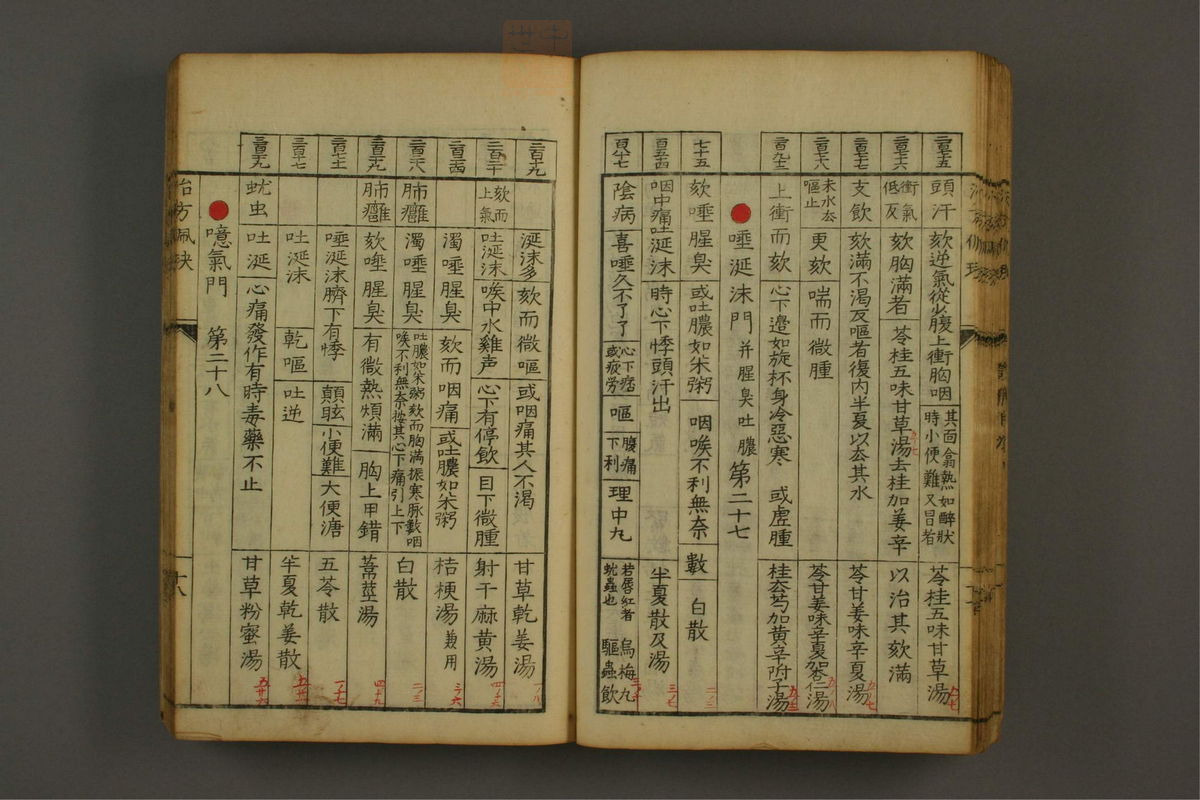 頭汗 欬逆氣從少腹上衝胸咽 其面翕熱如醉狀時小便難又冒者 苓桂五味甘草湯
衝氣低反 欬胸滿者 苓桂五味甘草湯去桂加姜辛 以治其欬滿
支飲 欬滿不渴反嘔者復內半夏以去其水 苓甘姜味辛夏湯
未水去嘔止 更欬 喘而微腫 苓甘姜味辛夏加杏仁湯
上衝而欬 心下邊如旋杯身冷惡寒 或虛腫 桂去芍加黃辛附子湯
唾涎沫門 并腥臭吐膿 第二十七
七十五 欬唾腥臭 或吐膿如朱粥 咽喉不利無奈 數 白散
咽中痛吐涎沫 時心下悸頭汗出 半夏散及湯
陰病 喜唾久不了了 心下痞或疲勞 嘔 腹痛下利 理中九 若唇紅者蚘蟲也 烏梅九 驅蟲飲
涎沫多 欬而微嘔 或咽痛其人不渴 甘草乾姜湯
欬而上氣 吐涎沫 喉中水雞声 心下有停飲 目下微腫 射干麻黃湯
濁唾腥臭 欬而咽痛 或吐膿如朱粥 桔梗湯 兼用
肺癰 濁唾腥臭 吐膿如朱粥欬而胸滿振寒脉數咽喉不利無奈按其心下痛引上下 白散
肺癰 欬唾腥臭 有微熱煩滿 胸上甲錯 葦莖湯
唾涎沫臍下有悸 顛眩 小便難 大便溏 五苓散
吐涎沫 乾嘔 吐逆 半夏乾姜散
蚘虫 吐涎 心痛發作有時毒藥不止 甘草粉蜜湯
噫氣門 第二十八
治方珮玦 十八